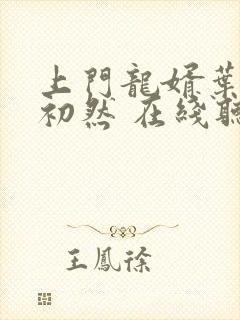 上門龍婿葉
初然 在綫聽
王鳳徐